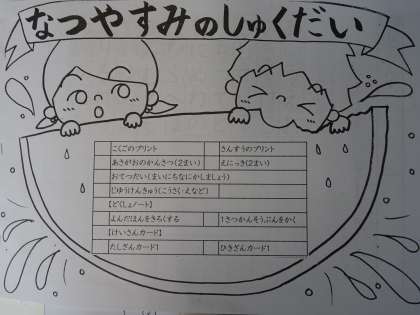 なつやすみのしゅくだい
こくごのプリント さんすうのプリント
あさがおのかんさつ(2まい) えにっき(2まい)
おてつだい(まいにちなにかしましょう)
じゆうけんきゅう(こうさく・えなど)
【どくしょノート】
よんだほんをきろくする 1さつかんそうぶんをかく
【けいさんカード】
たしざんカード1 ひきざんカード1